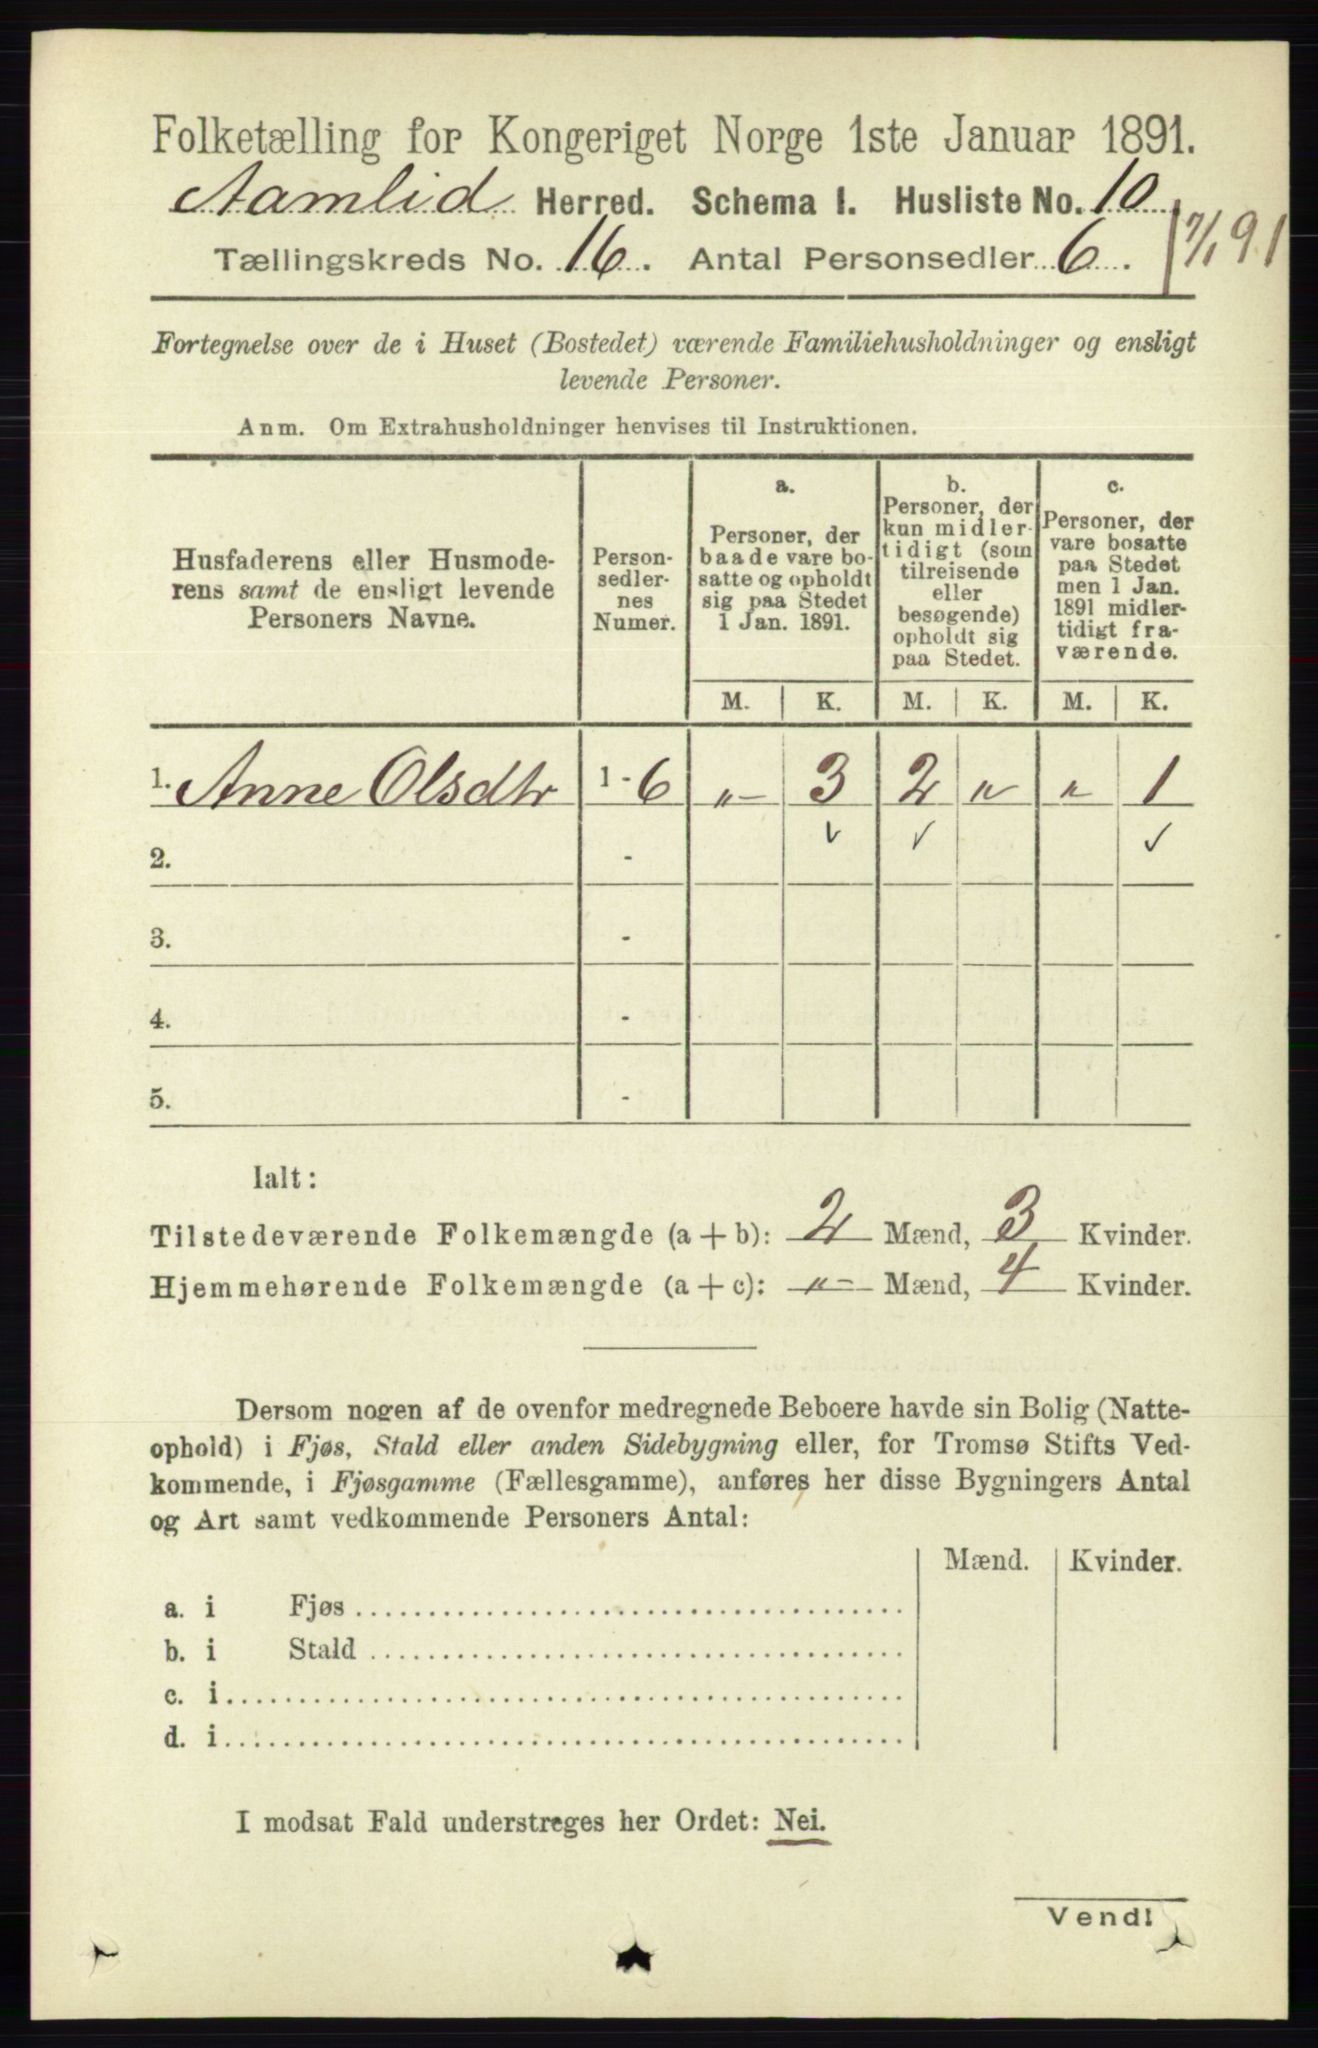 Folketælling for Kongeriget Norge 1ste Januar 1891.
Aamlid Herred. Schema I. Husliste No. 10
Tællingskreds No. 16. Antal Personsedler 6. 7/1 91
Fortegnelse over de i Huset (Bostedet) værende Familiehusholdninger og ensligt
levende Personer.
Anm. Om Extrahusholdninger henvises til Instruktionen.
Husfaderens eller Husmode-
rens samt de ensligt levende
Personers Navne.
Person-
sedler-
nes
Numer.
a.
Personer, der
baade vare bo-
satte og opholdt
sig paa Stedet
1 Jan. 1891.
b.
Personer, der
kun midler-
tidigt (som
tilreisende
eller
besøgende)
opholdt sig
paa Stedet.
c.
Personer, der
vare bosatte
paa Stedet
men 1 Jan.
1891 midler-
tidigt fra-
værende.
M. K. M. K. M. K.
1. Anne Olsdtr 1 - 6 „ - 3 2 „ „ 1
✓ ✓ ✓
2. -
3. -
4. -
5. -
Ialt:
Tilstedeværende Folkemængde (a + b): 2 Mænd, 3 Kvinder.
Hjemmehørende Folkemængde (a + c): „ - Mænd, 4 Kvinder.
Dersom nogen af de ovenfor medregnede Beboere havde sin Bolig (Natte-
ophold) i Fjøs, Stald eller anden Sidebygning eller, for Tromsø Stifts Ved-
kommende, i Fjøsgamme (Fællesgamme), anføres her disse Bygningers Antal
og Art samt vedkommende Personers Antal:
Mænd. Kvinder.
a. i Fjøs
b. i Stald
c. i
d. i
I modsat Fald understreges her Ordet: Nei.
Vend!